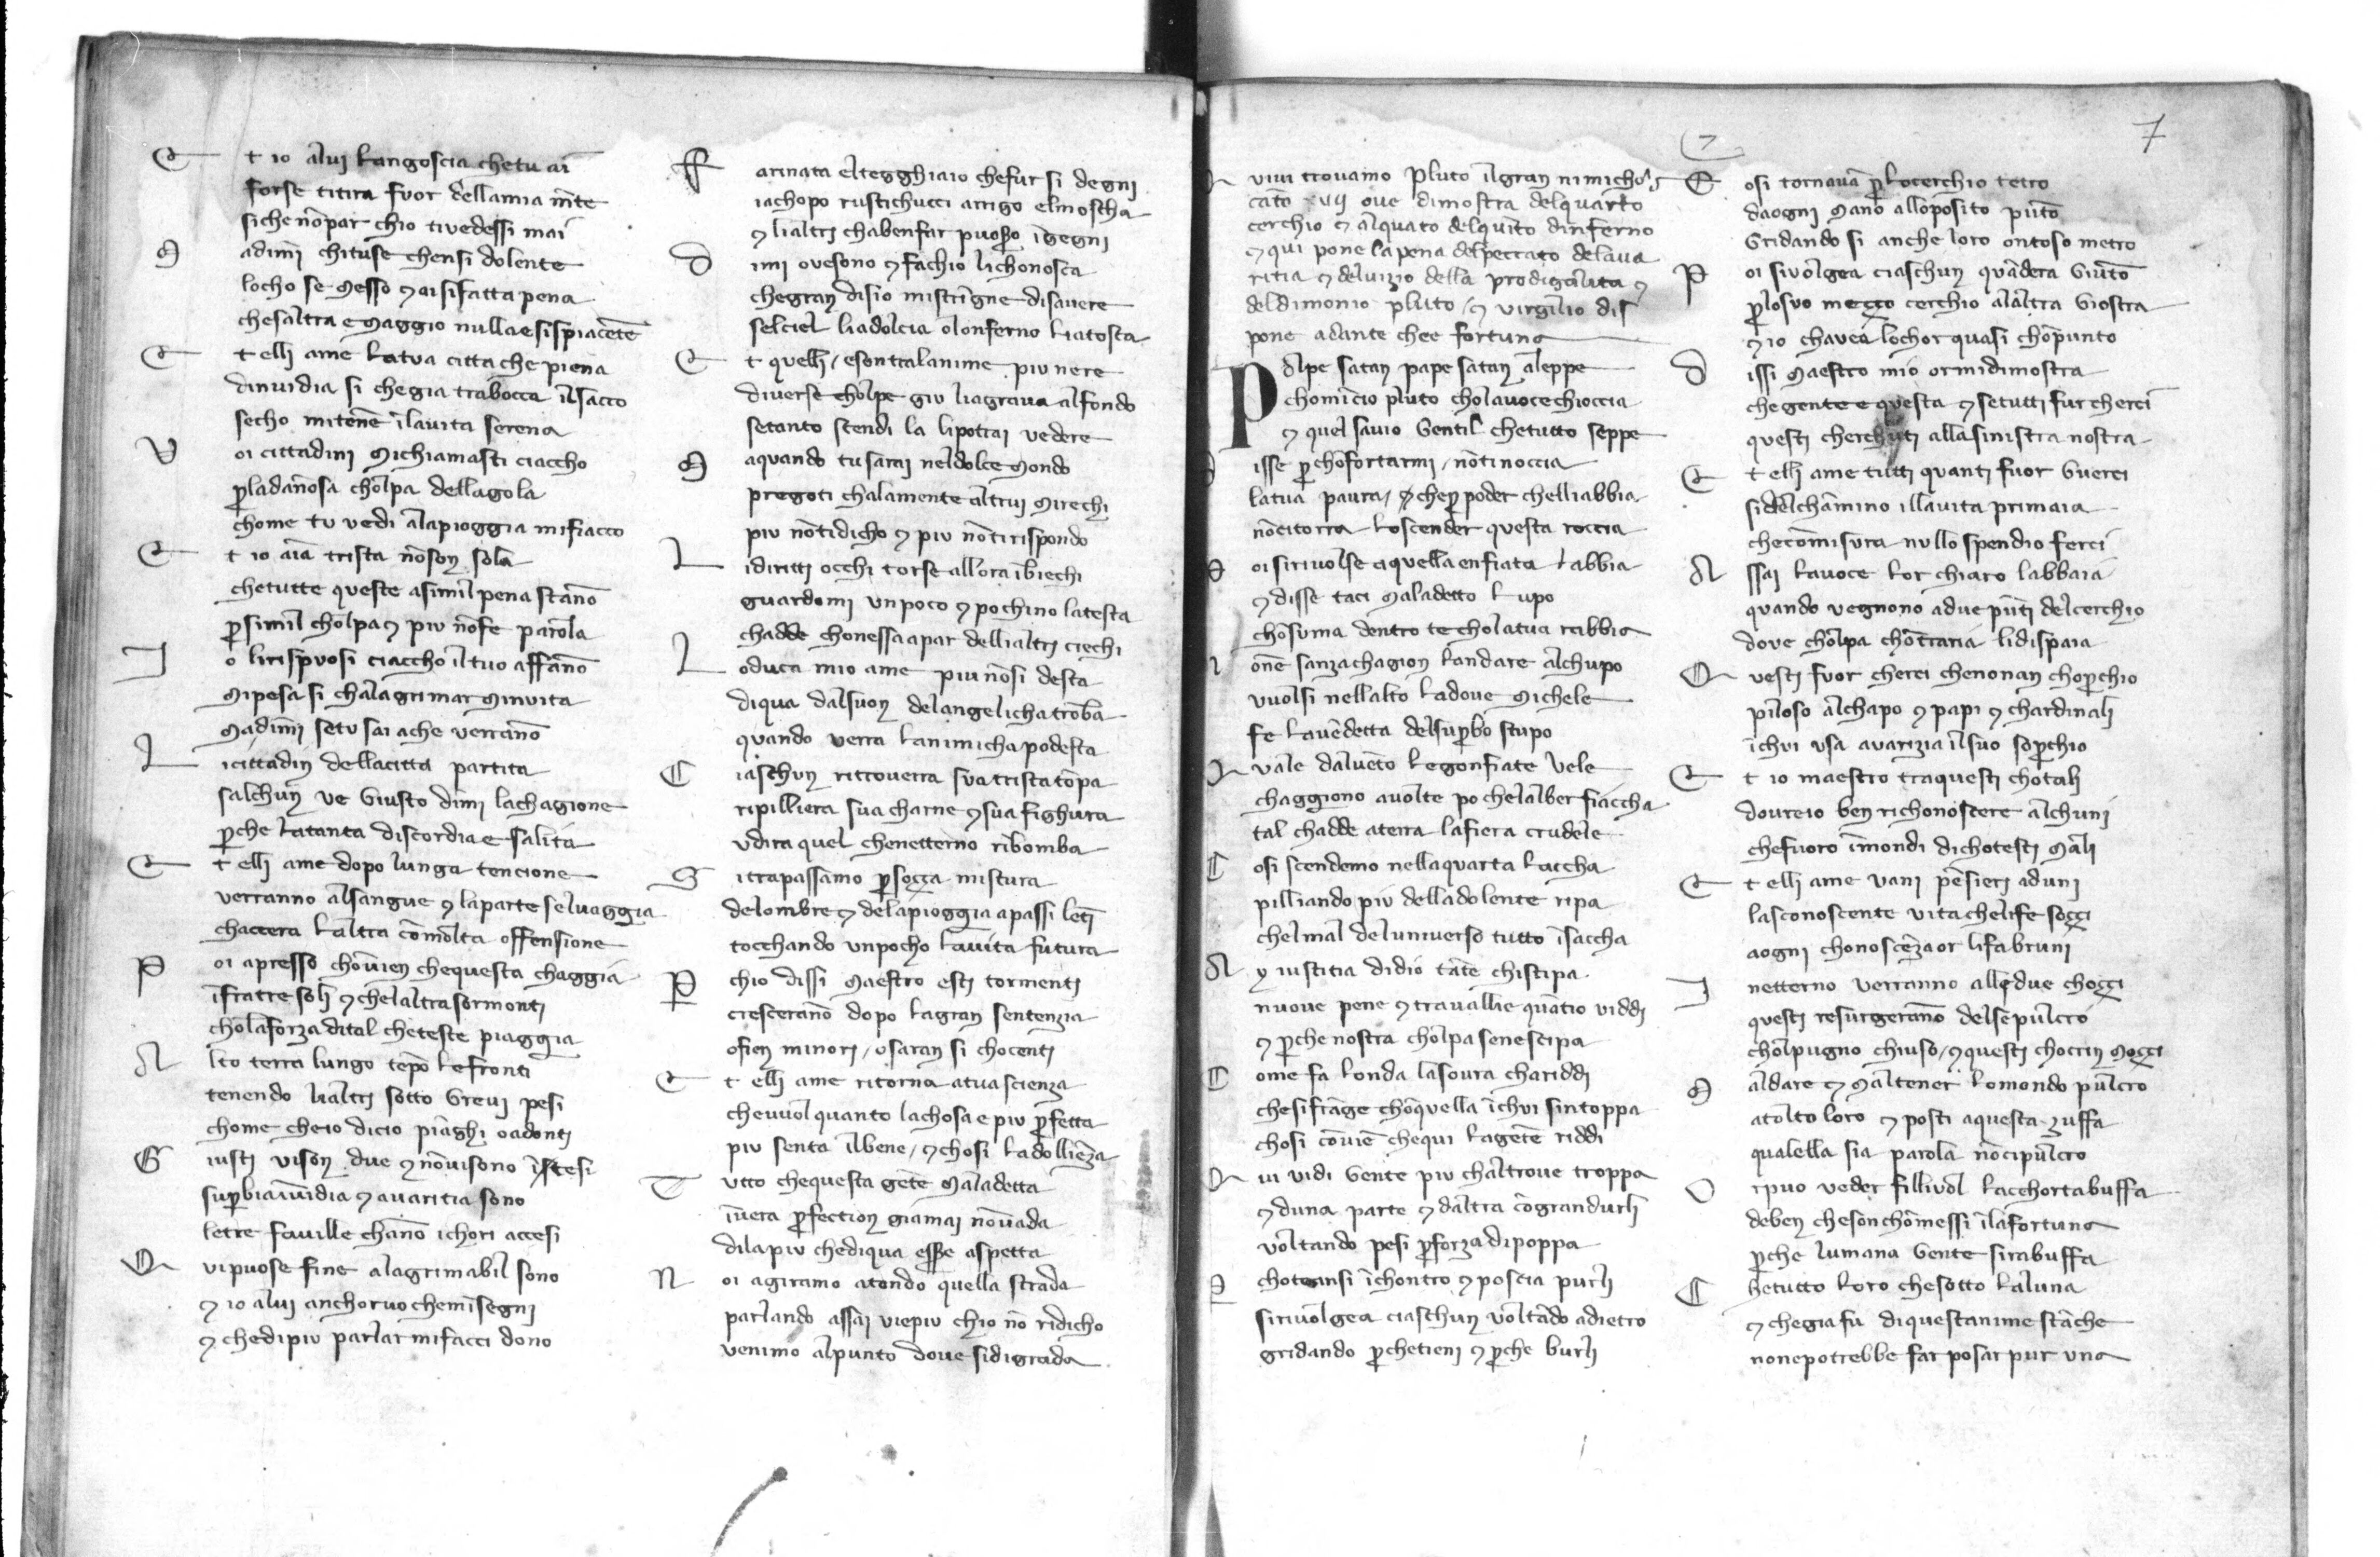 Et io alui langoscia chetu ai
forse titira fuor dellamia mēte
sichenōpar chio tivedessi mai
Madimī chituse chensi dolente
locho se messo ⁊ ai sifatta pena
chesaltra e maggio nullae sispiacēte
Et elli ame latua citta che piena
dinuidia si chegia trabocca ilsacco
secho mitene īlauita serena
Voi cittadini michiamasti ciaccho
p̄ladānosa cholpa dellagola
chome tu vedi alapioggia mifiacco
Et io aīa trista nōson sola
chetutte queste asimil pena stāno
p̄simil cholpa ⁊ piu nōfe parola
Io lirispuosi ciaccho iltuo affāno
mipesa si chalagrimar minuita
madimī setu sai ache verrāno
Licittadin dellacitta partita
salchun ve giusto dimī lachagione
p̄che latanta discordia e salita
Et elli ame dopo lunga tencione
verranno alsangue ⁊ laparte seluaggia
chaccera laltra cōmolta offensione
Poi apresso chōuien chequesta chaggia
īfratre soli ⁊ chelaltra sormonti
cholaforza dital cheteste piaggia
Alto terra lungo tēpo lefronti
tenendo lialtri sotto greui pesi
chome cheio dicio piāghi oadonti
Giusti vison due ⁊ nōuisono ītesi
sup̄bia īuidia ⁊ auaritia sono
letre fauille chāno ichori accesi
Qui puose fine alagrimabil sono
⁊ io alui anchoruo chemīsegni
⁊ chedipiu parlar mifacci dono
Farinata eltegghiaio chefur si degni
iachopo rustichucci arrigo elmoscha
⁊ lialtri chabenfar puoso īgegni
Dimi ovesono ⁊ fachio lichonosca
chegran disio mistrigne disauere
selciel liadolcia olonferno liatosca
Et quelli / esontralanime piu nere
diverse cholpe giu liagraua alfondo
setanto scendi la lipotrai vedere
Maquando tusarai neldolce mondo
pregoti chalamente altrui mirechi
piu nōtidicho ⁊ piu nōtirispondo
Lidiritti occhi torse allora ībiechi
guardomi unpoco ⁊ pochino latesta
chadde chonessa apar dellialtri ciechi
Loduca mio ame piu nōsi desta
diqua dalsuon delangelicha trōba
quando verra lanimicha podesta
Ciaschun ritrouerra sua trista tōpa
ripilliera sua charne ⁊ sua fighura
udira quel chenetterno ribomba
Sitrapassamo p̄sozza mistura
delombre ⁊ delapioggia apassi lēti
tocchando unpocho lauita futura
P̄chio dissi maestro esti tormenti
cresceranō dopo lagran sentenzia
ofien minori / osaran si chocenti
Et elli ame ritorna atua scienza
chevuol quanto lachosa e piu p̄fetta
piu senta ilbene / ⁊ chosi ladollieza
Tutto chequesta gēte maladetta
īuera p̄fection giamai nōuada
dilapiu chediqua esse aspetta
Noi agiramo atondo quella strada
parlando assai viepiu chio nō ridicho
venimo alpunto doue sidigrada
Quiui trouamo pluto ilgran nimicho
cāto vii oue dimostra delquarto
cerchio ⁊ alquāto delquīto dinferno
⁊ qui pone lapena delpeccato delaua
ritia ⁊ deluizio della prodigalita ⁊
deldimonio pluto / ⁊ virgilio dis
pone adante chee fortuna
Palpe satan pape satan aleppe
chomīcio pluto cholauoce chioccia
⁊ quel sauio gentil chetutto seppe
Disse p̄ chōfortarmi / nōtinoccia
latua paura / chep̄ poder chelliabbia
nōcitorra loscender questa roccia
Poi siriuolse aquella enfiata labbia
⁊ disse taci maladetto lupo
chōsuma dentro te cholatua rabbia
Nonē sanzachagion landare alchupo
vuolsi nellalto ladoue michele
fe lauēdetta delsup̄bo strupo
Quale daluēto legonfiate vele
chaggiono auolte po chelalber fiaccha
tal chadde aterra lafiera crudele
Cosi scendemo nellaquarta laccha
pilliando piu delladolente ripa
chelmal deluniuerso tutto īsaccha
Ay iustitia didio tāte chistipa
nuoue pene ⁊ trauallie quātio viddi
⁊ p̄che nostra cholpa senescipa
Come fa londa lasoura chariddi
chesifrāge chōquella īchui sintoppa
chosi cōuiē chequi lagēte riddi
Qui vidi gente piu chaltroue troppa
⁊ duna parte ⁊ daltra cōgrandurli
voltando pesi p̄forza dipoppa
P̄chotansi īchontro ⁊ poscia purli
siriuolgea ciaschun voltādo adietro
gridando p̄chetieni ⁊ p̄che burli
7
7
Cosi tornauā p̄locerchio tetro
daogni mano alloposito pūto
Gridando si anche loro ontoso metro
Poi siuolgea ciaschun quādera giūto
p̄losuo mezzo cerchio alaltra giostra
⁊ io chauea lochor quasi chōpunto
Dissi maestro mio ormidimostra
chegente e questa ⁊ setutti fur cherci
questi cherchuti allasinistra nostra
Et elli ame tutti quanti fuor guerci
sidelchāmino illauita primaia
checōmisura nullo spendio ferci
Assai lauoce lor chiaro labbaia
quando vegnono adue pūti delcerchio
dove cholpa chōtraria lidispaia
Questi fuor cherci chenonan chop̄chio
piloso alchapo ⁊ papi ⁊ chardinali
īchui usa avarizia ilsuo sop̄chio
Et io maestro traquesti chotali
doureio ben richonoscere alchuni
chefuoro īmondi dichotesti mali
Et elli ame vani pēsieri aduni
lasconoscente vita chelife sozzi
aogni chonoscēza or lifabruni
Inetterno verranno alledue chozzi
questi resurgeranno delsepulcro
cholpugno chiuso / ⁊ questi chocrin mozzi
Maldare ⁊ maltener lomondo pulcro
atolto loro ⁊ posti aquesta zuffa
qualella sia parola nōcipulcro
Orpuo veder fillivol lacchorta buffa
deben chesonchōmessi īlafortuna
p̄che lumana gente sirabuffa
Chetutto loro chesotto laluna
⁊ chegia fu diquestanime stāche
nonepotrebbe far posar pur una